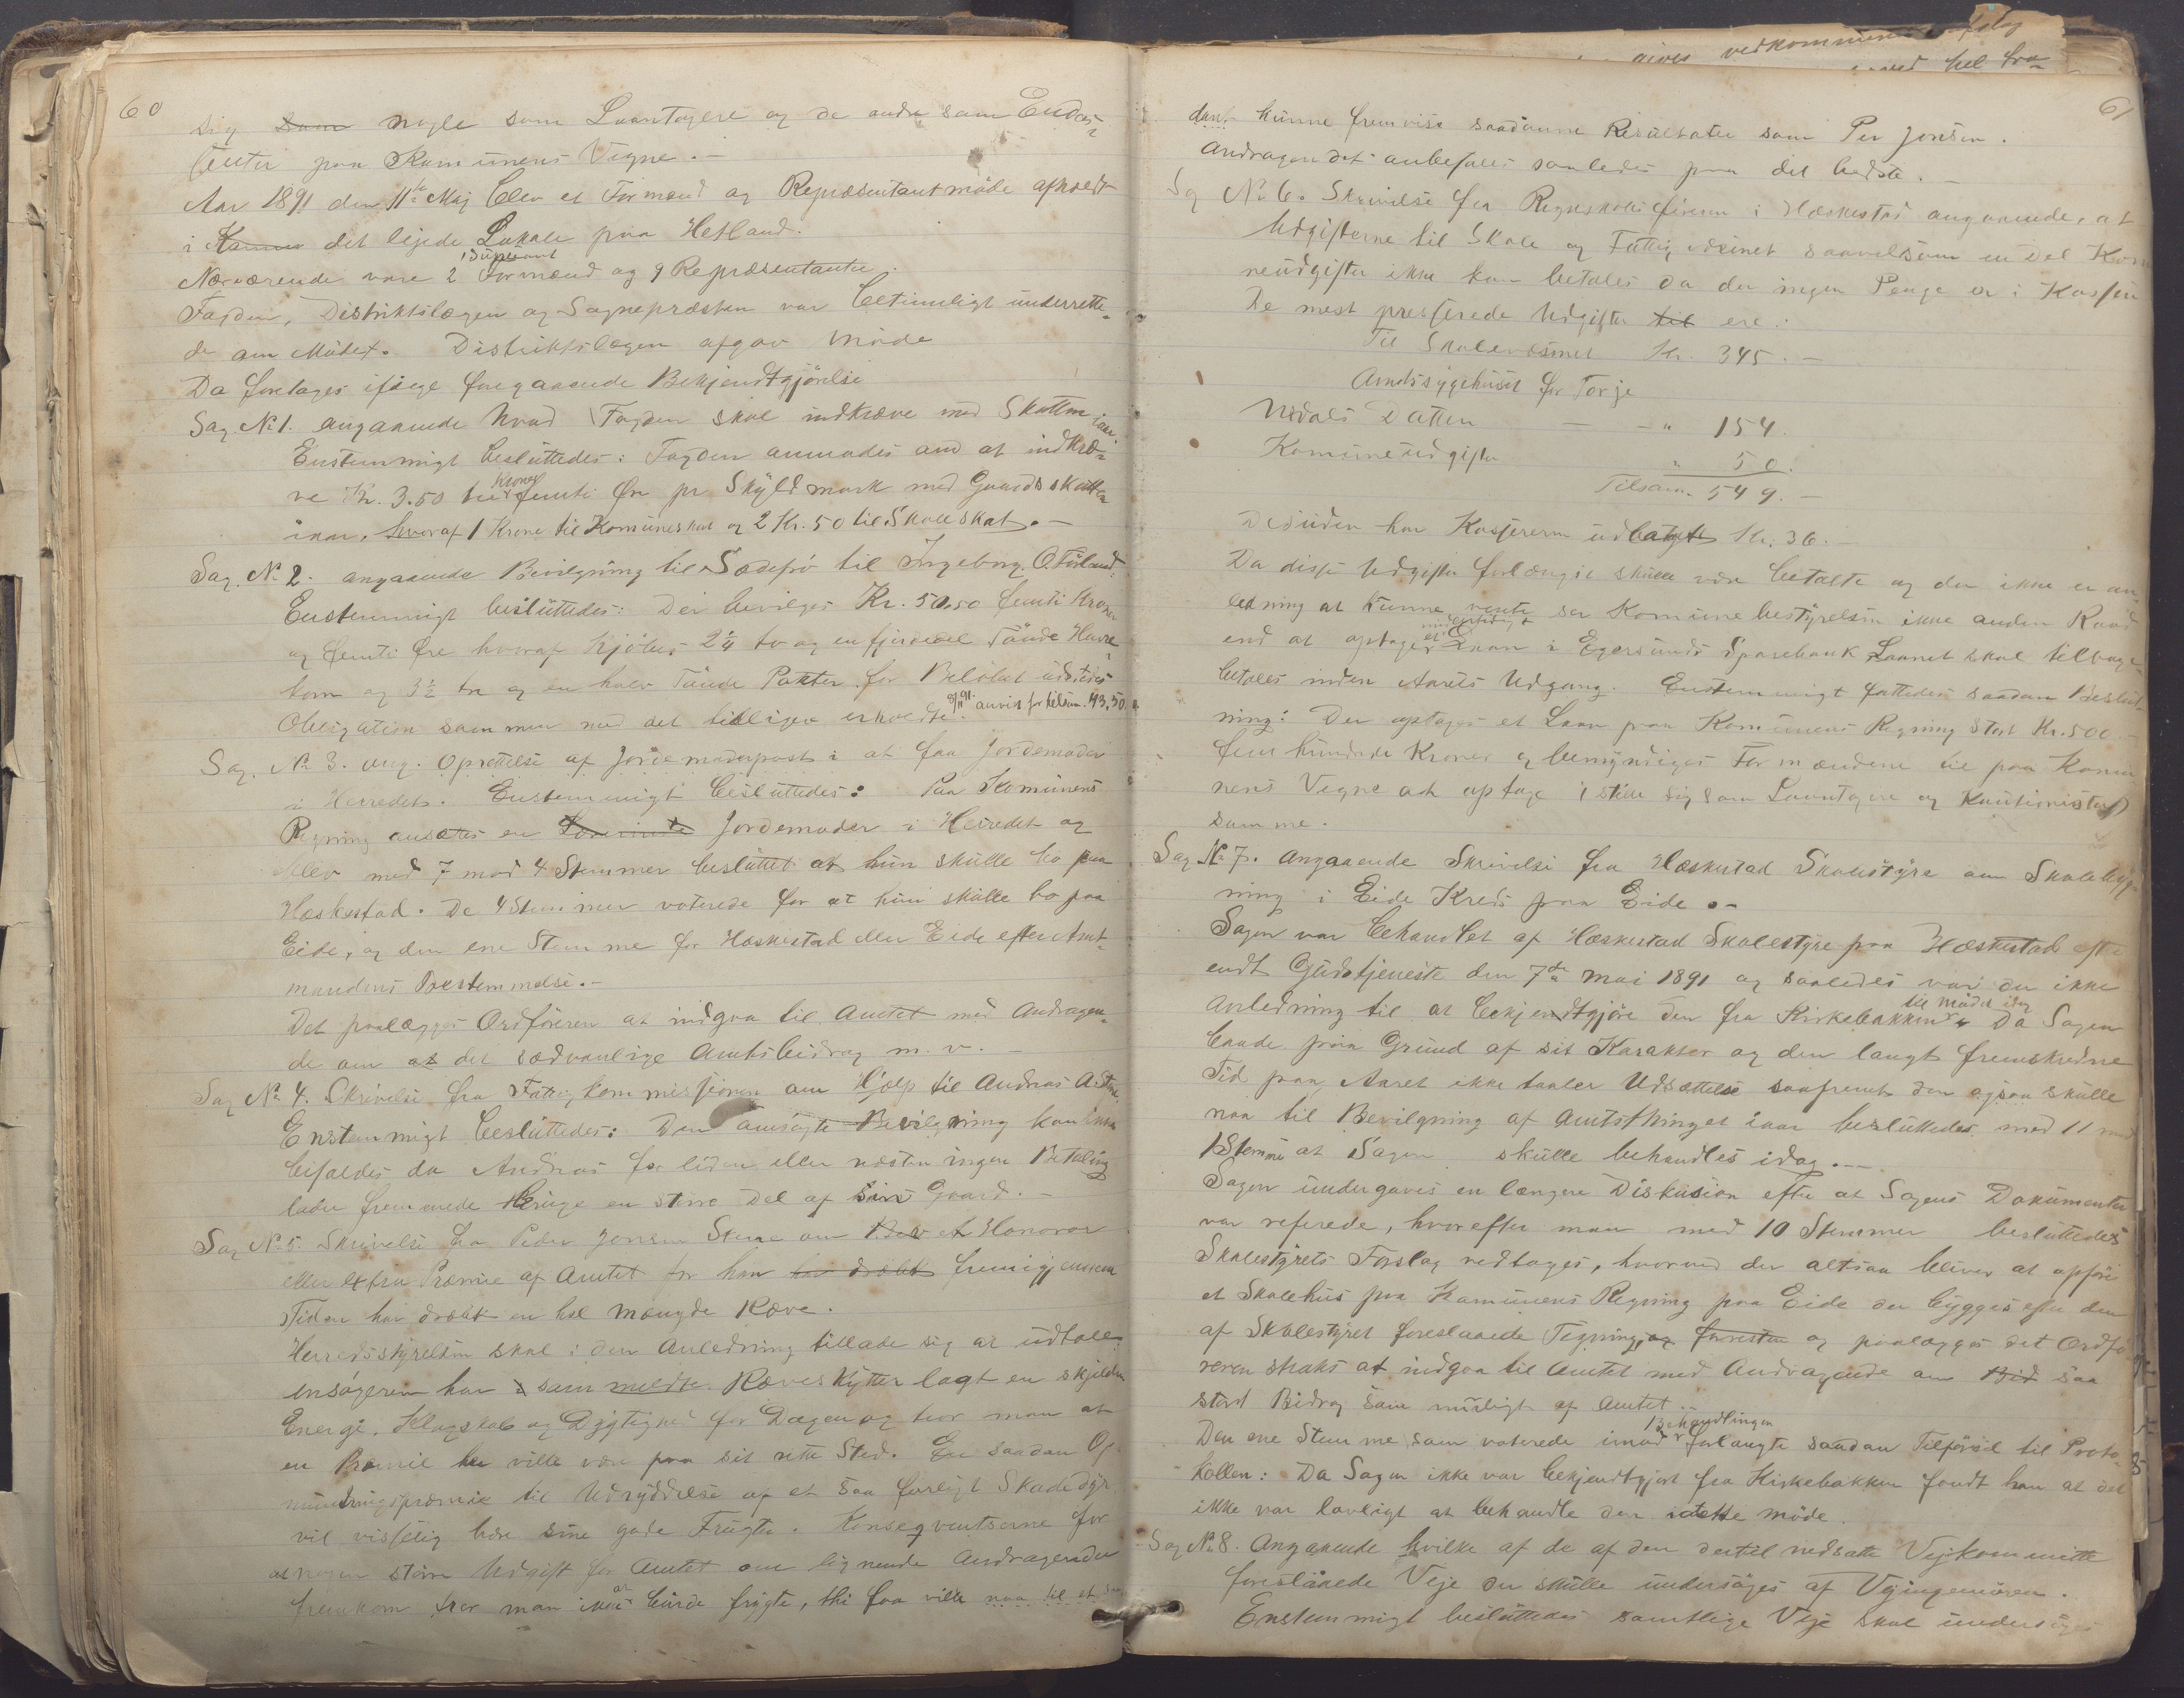 60
sig som nogle som Laantagere og de andre som Endos-
senter paa Kommunens Vegne.-
Aar 1891 den 11te Maj blev et Formand og Repræsentantmöde afholdt
i det lejede Lokale paa Hetland.
1 Supleant
Nærværende vare 2 Formænd og 9 Repræsentanter.
Fogden, Distriktslægen og Sognepræsten var betimeligt underrette-
de om Mödet. Distriktslægen afgav Möde
Da foretages ifølge foregaaende Bekjendtgjörelse
Sag No 1. angaaende hvad Fogden skal indkræve med Skatten iaar.
Enstemmigt besluttedes: Fogden anmodes om at indkræ-
ve Kr. 3.50 tre Kroner femti Øre pr Skyldmark med Gaardsskatten
iaar, hvoraf 1 Krone til Komuneskat og 2 Kr. 50 til Skoleskat.-
Sag No 2. angaaende Bevilgning til Sædefrö til Ingeborg O. Förland
Enstemmigt besluttedes: Der bevilges Kr. 50.50 femti Kroner
og femti Øre hvoraf kjöbes 2 1/4 to og en fjerdedel Tönde Havre-
korn og 3 1/2 tre og en halv Tönde Poteter for Belöbet udstedes
Obligation sammen med det tidligere erholdte. anvist for tilsam. 43,50
Sag. No 3. ang. Oprettelse af Jordemoderpost i at faa Jordemoder
i Herredet. Enstemmigt besluttedes: Paa Komunens
Regning ansættes en Jordemoder i Herredet og
blev med 7 mod 4 Stemmer besluttet at hun skulle bo paa
Heskestad. De 4 Stemmer voterede for at hun skulle bo paa
Eide, og den ene Stemme for Heskestad eller Eide efter Amt-
mandens Bestemmelse.-
Det paalægges Ordföreren at indgaa til Amtet med Andragen-
de om at det sædvanlige Amtsbidrag m. v. -
Sag No 4. Skrivelse fra Fattigkommissionen om Hjælp til Andreas A.
Enstemmigt besluttedes: Den ansögte Bevilgning kan ikke
bifaldes da Andreas for liden eller næsten ingen Betaling
lader fremmede bruge en störe Del af sin Gaard. -
Sag No 5. Skrivelse fra Peder Jonsen Stene om et Honorar
eller extra Præmie af Amtet for han har dræbt fremigjennem
Tiden har dræbt en hel mængde Ræve.
Herredsstyrelsen skal i den Anledning tillade sig at udtale:
Ansögeren har som meldte Ræveskytter lagt en skjelden
Energi, Klogskab og Dygtighed for Dagen og tror man at
en Præmie her ville være paa sit rette Sted. En saadan Op-
muntringspræmie til Udryddelse af et saa farligt Skadedyr
vil visselig bære sine gode Frugter. Konseqventserne for
at nogen störe Udgift for Amtet om lignende Andragender
fremkom tror man ikke at burde frygte, thi faa ville naa til et
61
dant kunne fremvise saadanne Resultater som Per Jonsen.
Andragendet anbefales saaledes paa det bedste. -
Sag No 6. Skrivelse fra Regnskabsföreren i Heskestad angaaende, at
Udgifterne til Skole og Fattigvæsenet saavelsom en Del Komu
neudgifter ikke kan betales da der ingen Penge er i Kassen
De mest presserede Udgifter til ere:
Til Skolevæsenet Kr. 345. -
Amtssygehuset for Torje
Urdals Datter - - " 154.
Komuneudgifter " 50.
Tilsam. 549. -
Desuden har Kasseren udlagt Kr. 36. -
Da disse Udgifter forlængst skulle være betalte og der ikke er an
ledning at kunne vente ser Komunebestyrelsen ikke anden Raad
end at optage et midlertidigt Laan i Egersunds Sparebank Laanet skal tilbage-
betales inden Aarets Udgang. Enstemmigt fattedes saadan Beslut-
ning: Der optages et Laan paa Komunens Regning stort Kr. 500 -
fem hundrede Kroner og bemyndiges Formændene til paa Komu
nens Vegne at optage i stille sig som Laantagere og Kautionister
samme.
Sag No 7. Angaaende Skrivelse fra Heskestad Skolestyre om Skolebyg-
ning i Eide Kreds paa Eide.-
Sagen var behandlet af Heskestad Skolestyre paa Heskestad efter
endt Gudstjeneste den 7de Mai 1891 og saaledes var der ikke
Anledning til at bekjendtgjöre den fra Kirkebakken til mödet idag Da Sagen
baade paa Grund af sit Karakter og den langt fremskredne
Tid paa Aaret ikke taaler Udsættelse saafremt den ogsaa skulle
naa til Bevilgning af Amtsthinget iaar besluttedes med 11 mod
1 Stemme at Sagen skulle behandles idag.-
Sagen undergaves en længere Diskusion efter at Sagens Dokumenter
var referede, hvorefter man med 10 Stemmer besluttedes
Skolestyrets Forslag vedtages, hvorved der altsaa bliver at opföre
et Skolehus paa Komunens Regning paa Eide der bygges efter den
af Skolestyret foreslaaede Tegning, og og paalægges det Ordfö
reren straks at indgaa til Amtet med Andragende om Bid saa
stort Bidrag som muligt af Amtet. -
Den ene Stemme som voterede imod Behandlingen forlangte saadan Tilförsel til Proto-
kollen: Da Sagen ikke var bekjendtgjort fra Kirkebakken fandt han at det
ikke var lovligt at behandle den i dette möde.
Sag No 8. Angaaende hvilke af de af den dertil nedsatte Vejkommitte
foreslaaede Veje der skulle undersöges af Vejingeniören.
Enstemmigt besluttedes samtlige Veje skal undersöges